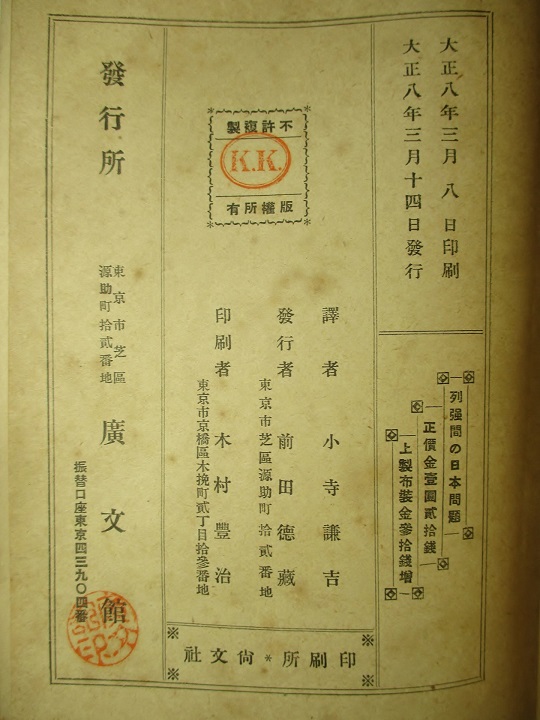 大正八年三月八日印刷
大正八年三月十四日發行
列强間の日本問題
正價金壹圓貳拾錢
上製布裝金參拾錢增
不許複製
K.K.
版權所有
譯者 小寺謙吉
發行者 前田德藏
東京市芝區源助町拾貳番地
印刷者 木村豐治
東京市京橋區木挽町貳丁目拾參番地
印刷所*尙文社
發行所
東京市芝區
源助町拾貳番地
廣文館
振替口座東京四三九〇四番